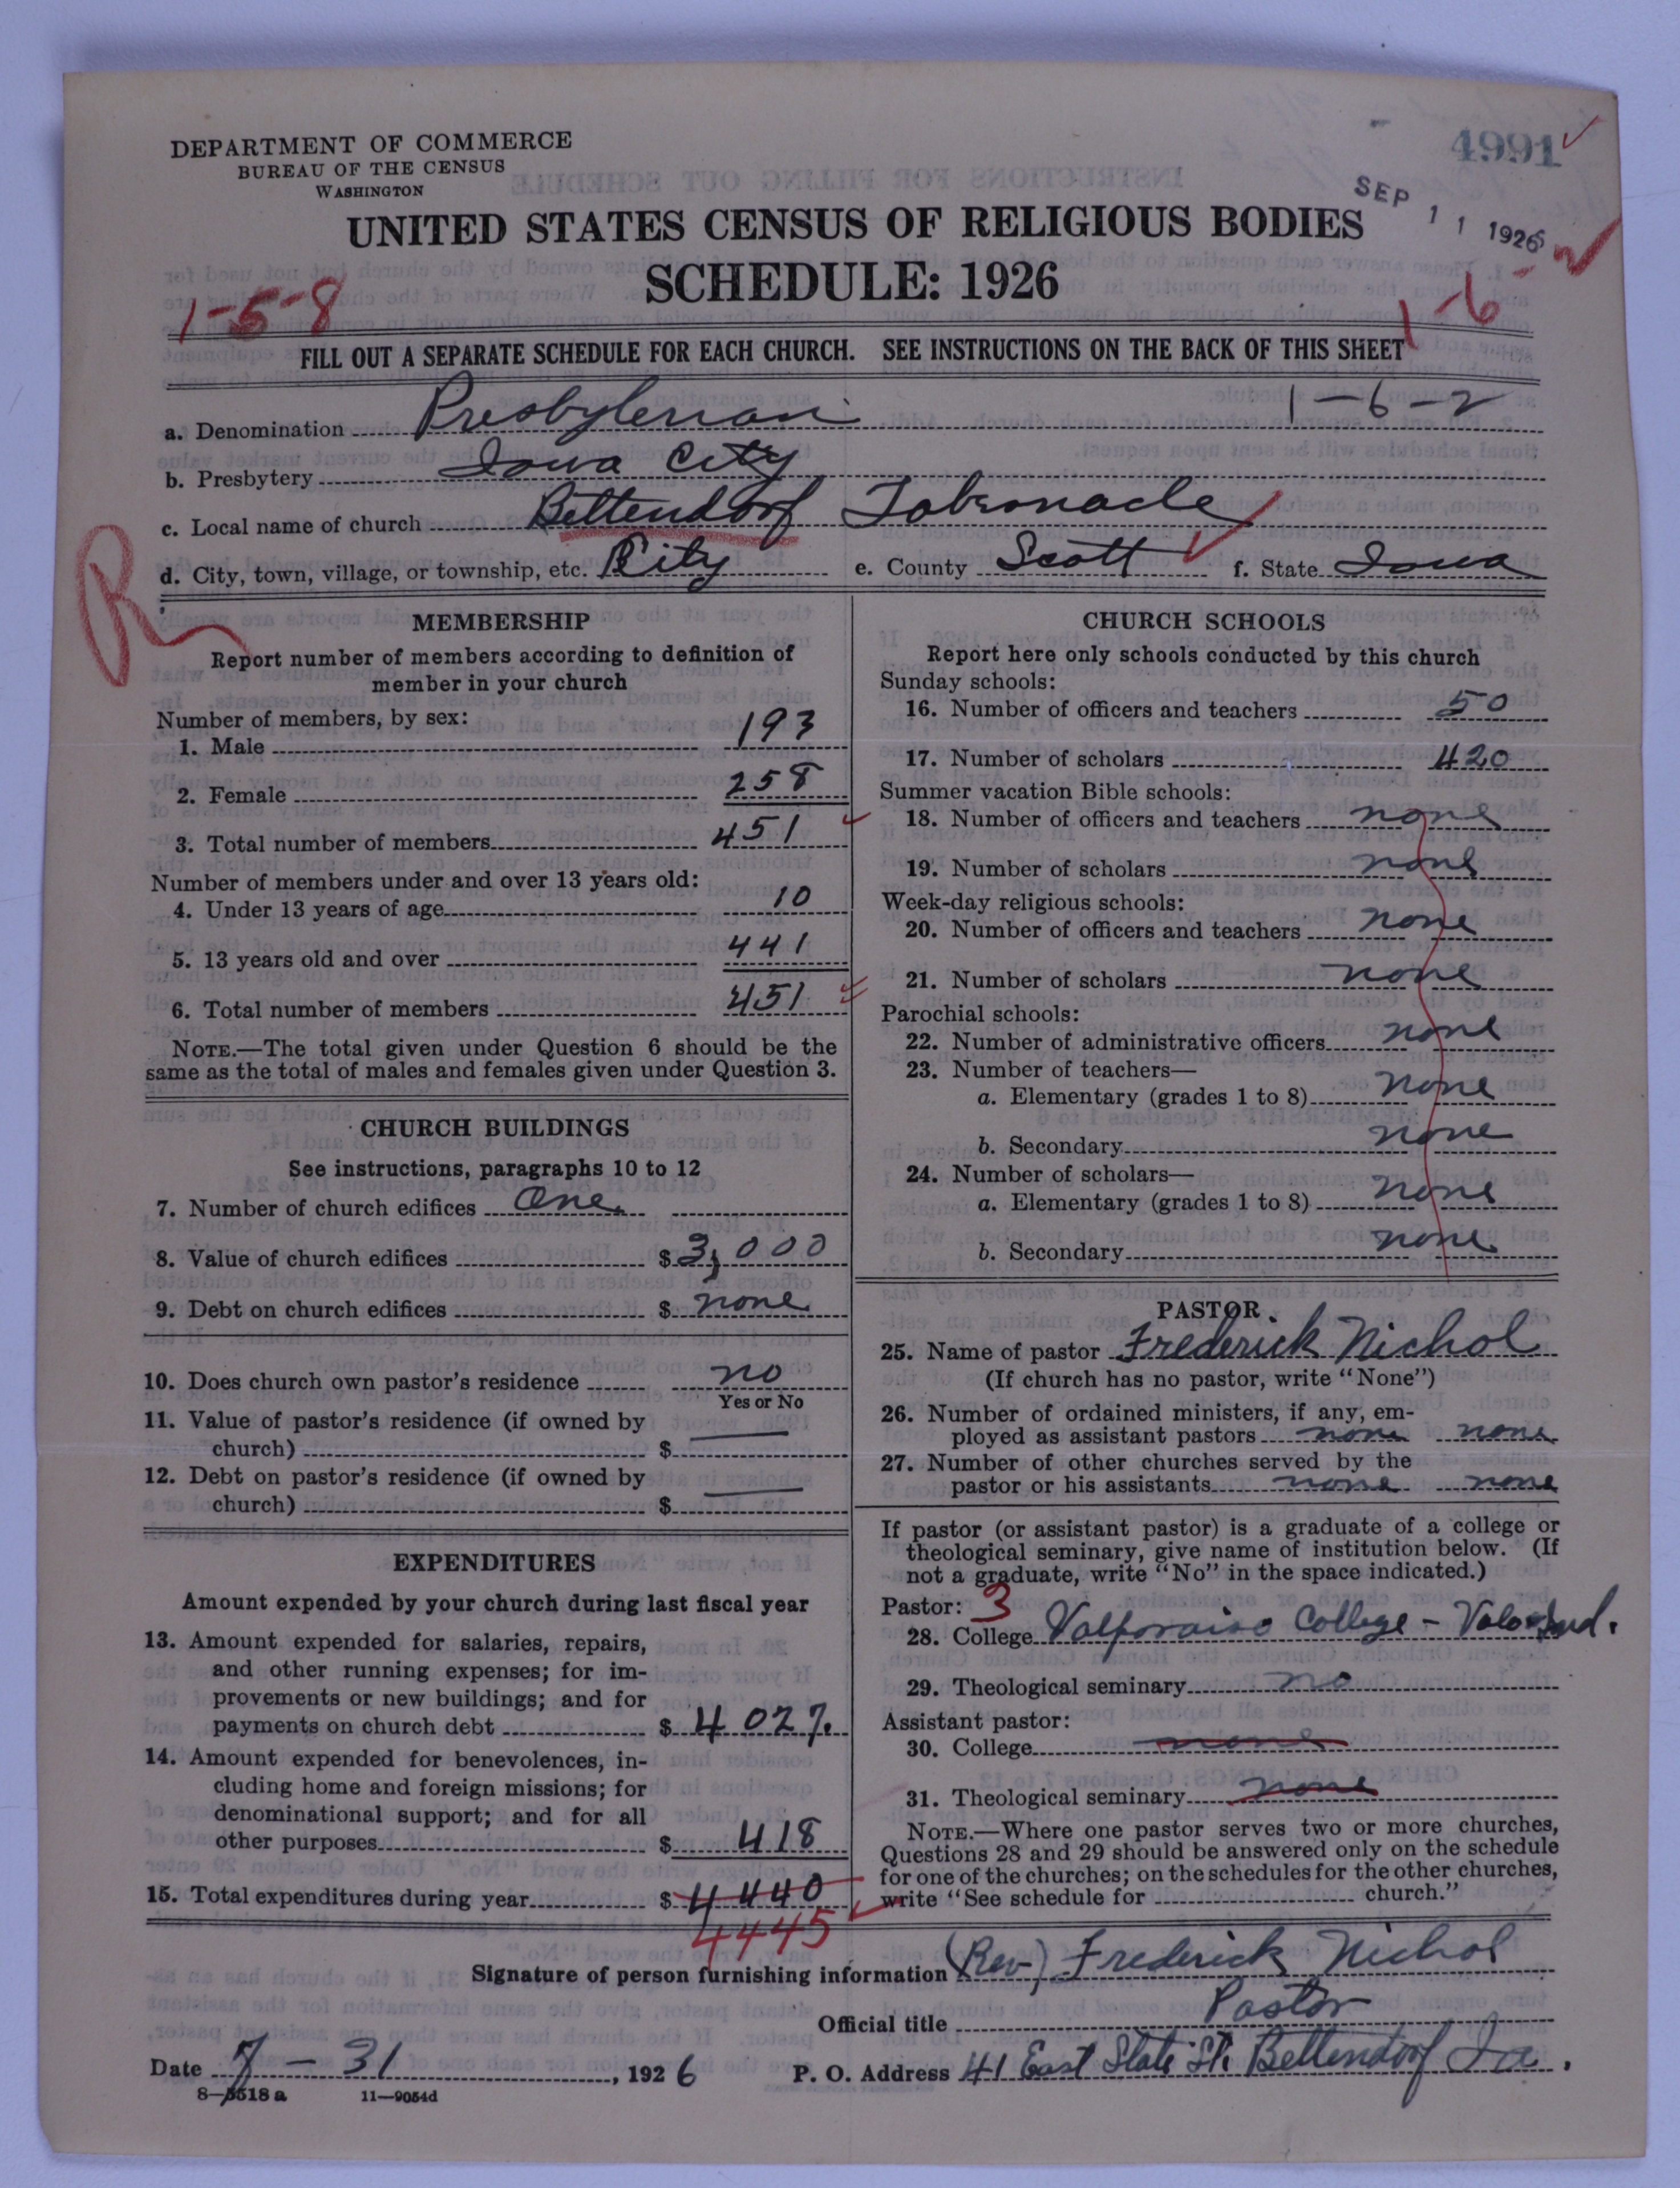 4991
DEPARTMENT OF COMMERCE
BUREAU OF THE CENSUS
WASHINGTON
SEP 11 1926
UNITED STATES CENSUS OF RELIGIOUS BODIES
SCHEDULE: 1926
1-5-8
1-6-2
FILL OUT A SEPARATE SCHEDULE FOR EACH CHURCH. SEE INSTRUCTIONS ON THE BACK OF THIS SHEET
a. Denomination Presbyterian 1-6-2
b. Presbytery Iowa City
c. Local name of church Bettendorf Tabernacle
d. City, town, village, or township, etc. City e. County Scott f. State Iowa
R
MEMBERSHIP
Report number of members according to definition of
member in your church
Number of members, by sex:
1. Male 193
2. Female 258
3. Total number of members 451
Number of members under and over 13 years old:
4. Under 13 years of age 10
5. 13 years old and over 441
6. Total number of members 451
NOTE.—The total given under Question 6 should be the
same as the total of males and females given under Question 3.
CHURCH BUILDINGS
See instructions, paragraphs 10 to 12
7. Number of church edifices One
8. Value of church edifices $ 3,000
9. Debt on church edifices $ none
10. Does church own pastor's residence no
Yes or No
11. Value of pastor's residence (if owned by
church) $ —
12. Debt on pastor's residence (if owned by
church) $ —
EXPENDITURES
Amount expended by your church during last fiscal year
13. Amount expended for salaries, repairs,
and other running expenses; for im-
provements or new buildings; and for
payments on church debt $ 4027.
14. Amount expended for benevolences, in-
cluding home and foreign missions; for
denominational support; and for all
other purposes $ 418
15. Total expenditures during year $ 4440
4445
CHURCH SCHOOLS
Report here only schools conducted by this church
Sunday schools:
16. Number of officers and teachers 50
17. Number of scholars 420
Summer vacation Bible schools:
18. Number of officers and teachers none
19. Number of scholars none
Week-day religious schools:
20. Number of officers and teachers none
21. Number of scholars none
Parochial schools:
22. Number of administrative officers none
23. Number of teachers—
a. Elementary (grades 1 to 8) none
b. Secondary none
24. Number of scholars—
a. Elementary (grades 1 to 8) none
b. Secondary none
PASTOR
25. Name of pastor Frederick Nichol
(If church has no pastor, write "None")
26. Number of ordained ministers, if any, em-
ployed as assistant pastors none none
27. Number of other churches served by the
pastor or his assistants none none
If pastor (or assistant pastor) is a graduate of a college or
theological seminary, give name of institution below. (If
not a graduate, write "No" in the space indicated.)
Pastor: 3
28. College Valporaiso College - Ind.
29. Theological seminary no
Assistant pastor:
30. College none
31. Theological seminary none
NOTE.—Where one pastor serves two or more churches,
Questions 28 and 29 should be answered only on the schedule
for one of the churches; on the schedules for the other churches,
write "See schedule for church."
Signature of person furnishing information (Rev) Frederick Nichol
Official title Pastor
Date 7-31, 1926 P. O. Address 41 East State St. Bettendorf Ia.
8—5518a 11—9054d